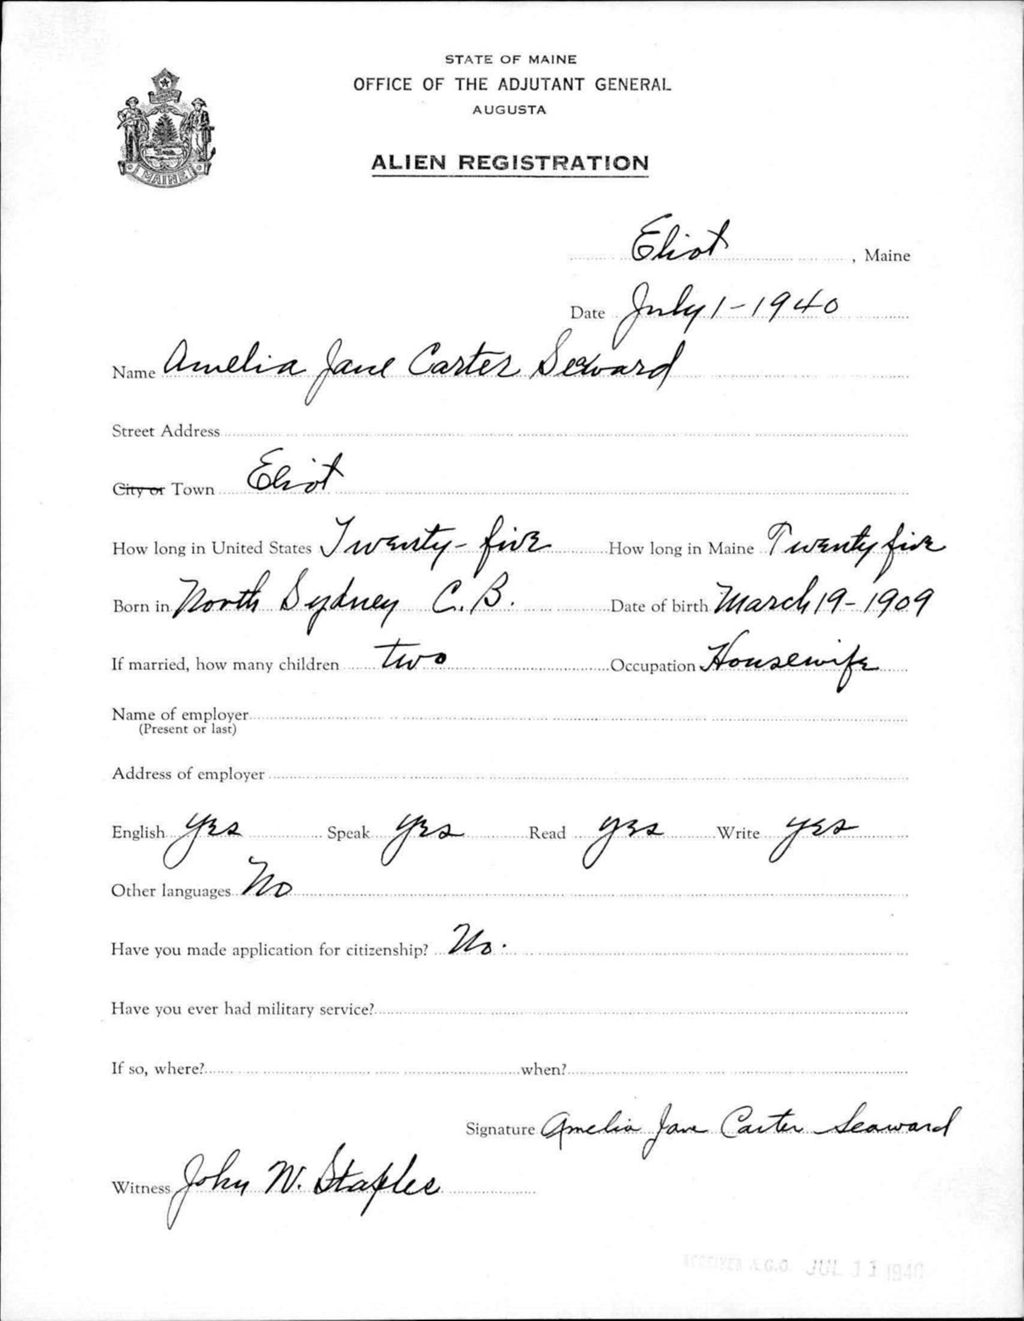 STATE OF MAINE
OFFICE OF THE ADJUTANT GENERAL
AUGUSTA
ALIEN REGISTRATION
MAINE
Eliot, Maine
Date July 1-1940
Name Amelia Jane Carter Seaward
Street Address
City or Town Eliot
How long in United States Twenty-five How long in Maine Twenty five
Born in North Sydney C.B. Date of birth March 19-1909
If married, how many children two Occupation Housewife
Name of employer
(Present or last)
Address of employer
English yes Speak yes Read yes Write yes
Other languages No
Have you made application for citizenship? No.
Have you ever had military service?
If so, where? when?
Signature Amelia Jane Carter Seaward
Witness John W. Staples
RECEIVED A.G.O. JUL 11 1940